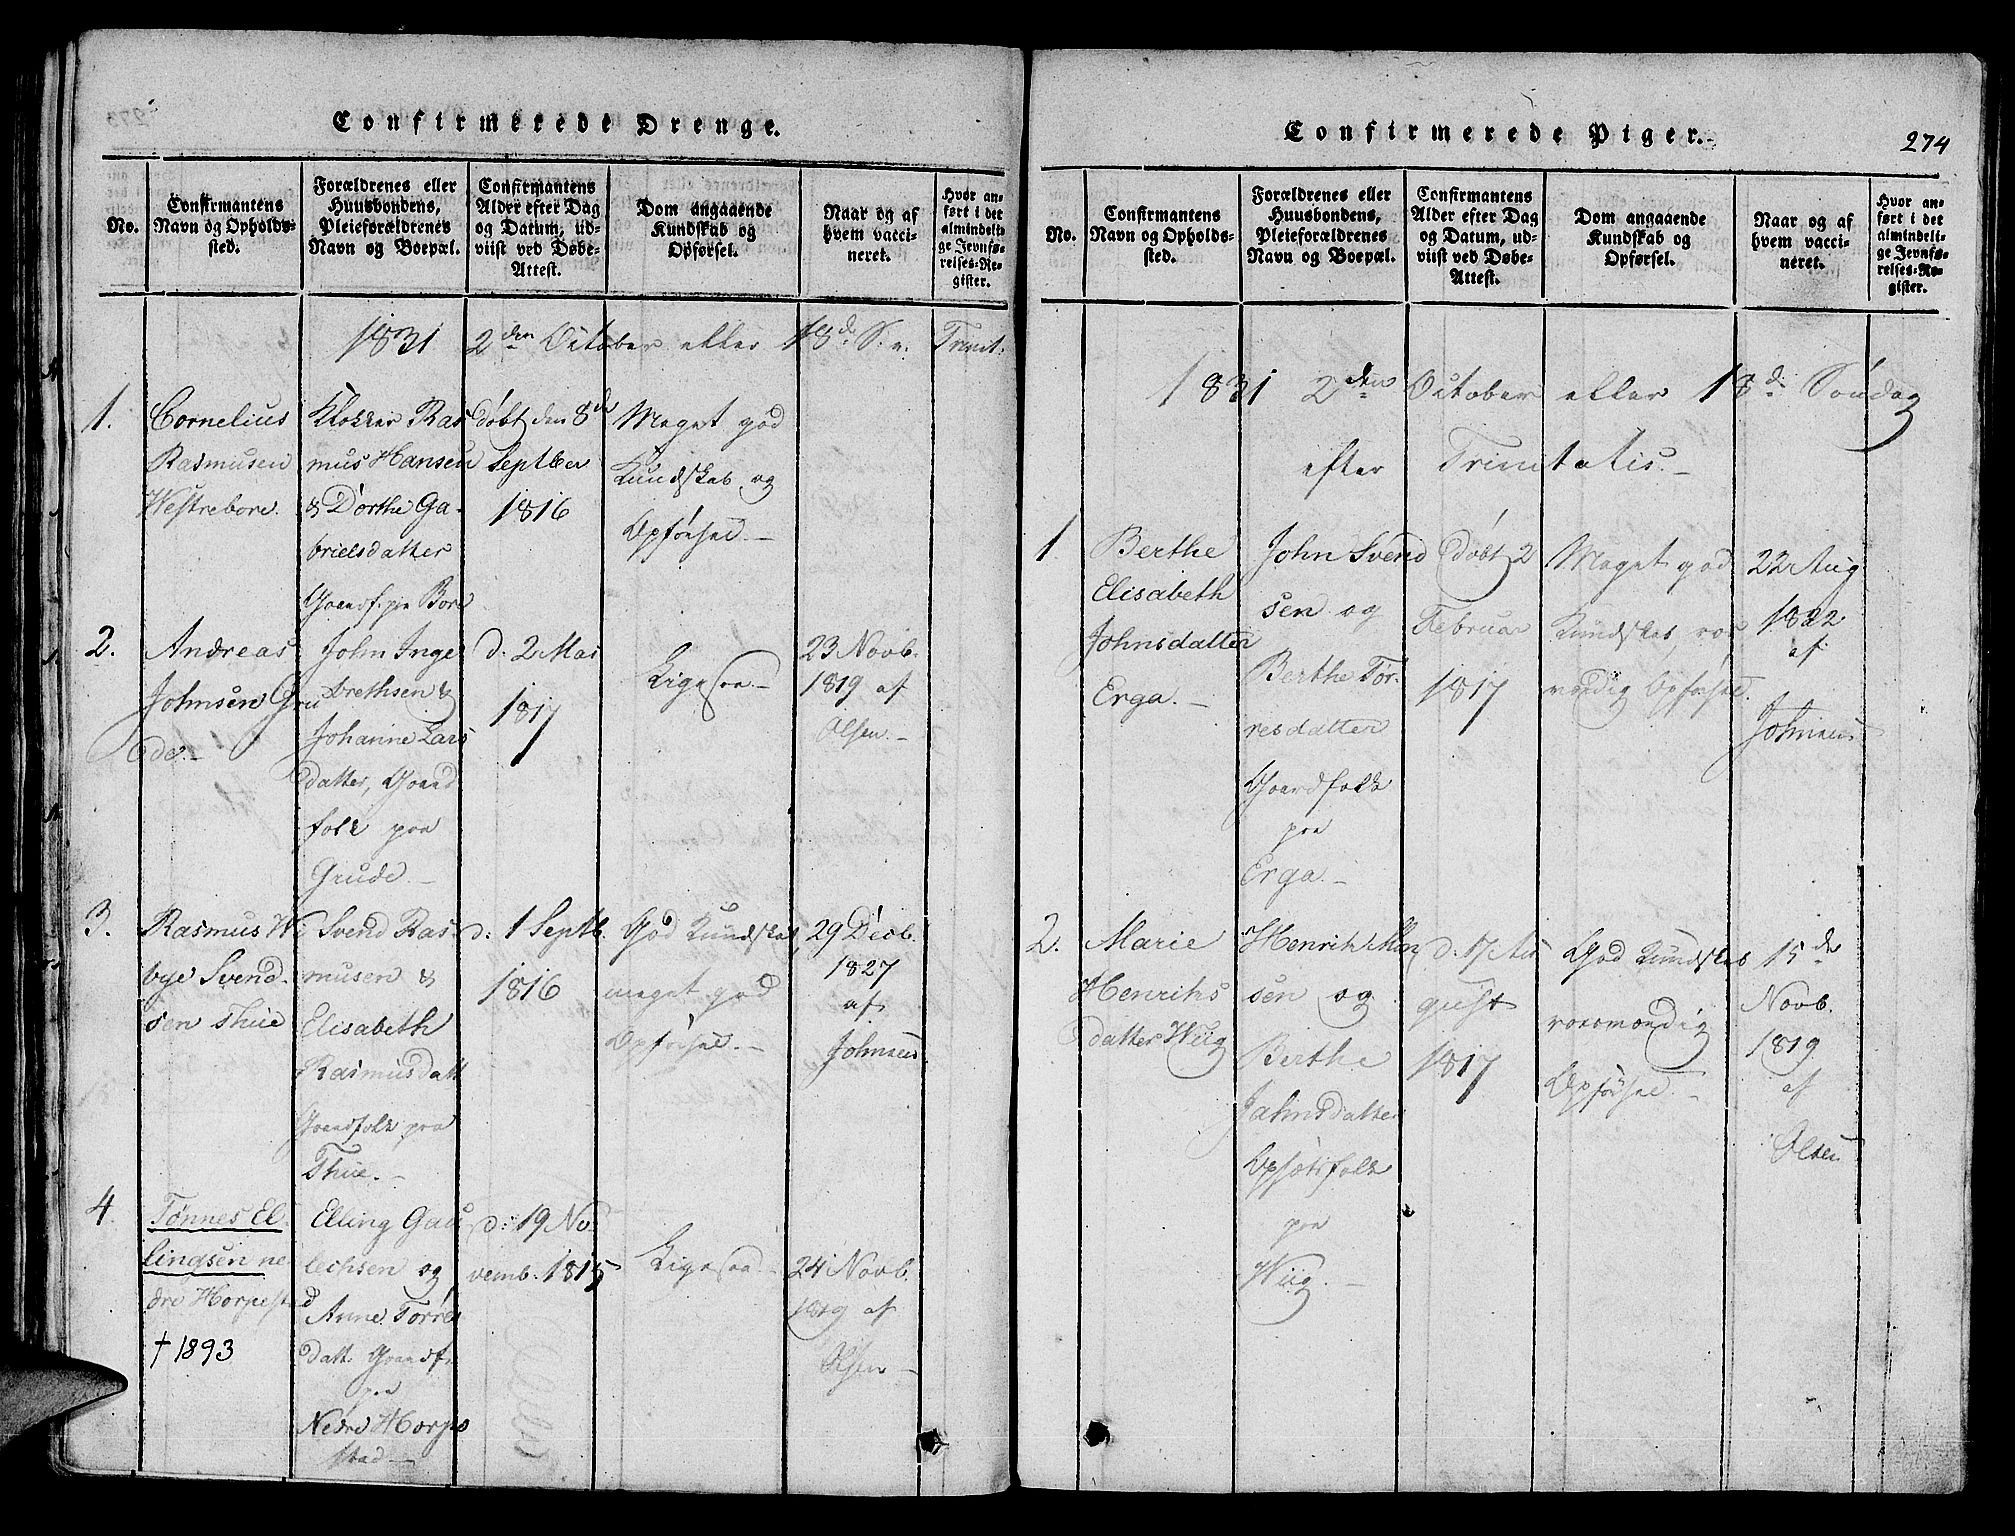 Confirmerede Drenge.
No.
Confirmantens
Navn og Opholds-
sted.
Forældrenes eller
Huusbondens,
Pleieforældrenes
Navn og Boepæl.
Confirmantens
Alder efter Dag
og Datum, ud-
viist ved Døbe-
Attest.
Dom angaaende
Kundskab og
Opførsel.
Naar og af
hvem vacci-
neret.
Hvor an-
ført i det
almindeli-
ge Jevnfø-
relses-Re-
gister.
1831 2den October eller 18de S. e. Trinit.
1.
Cornelius
Rasmusen
Westrebore.
Klokker Ras
mus Hansen
& Dorthe Ga-
brielsdatter
Gaardf. paa Bore
døbt den 8de
Septber
1816
Meget god
Kundskab og
Opførsel.
2.
Andreas
Johnsen Gru
de.
John Inge
brethsen &
Johanne Lars
datter, Gaard
folk paa
Grude.
d. 2 Mai
1817
Ligesaa.
23 Novb.
1819 af
Olsen.
3.
Rasmus Wi
bye Svend-
sen Thue
Svend Ras-
musen &
Elisabeth
Rasmusdatt
Gaardfolk paa
Thue.
d. 1 Septb.
1816
God Kundskab
meget god
Opførsel.
29 Decb.
1827
af
Johnsen
4.
Tønnes El-
lingsen ne-
dre Horpest
d
† 1893
Elling Gau
lechsen og
Anne Torres
datt. Gaardf.
paa
Nedre Horpe
stad
d: 19 No
vemb. 1815
Ligesaa
24 Novb.
1819 af
Olsen
Confirmerede Piger.
274
No.
Confirmantens
Navn og Opholds-
sted.
Forældrenes eller
Huusbondens,
Pleieforældrenes
Navn og Boepæl.
Confirmantens
Alder efter Dag
og Datum, ud-
viist ved Døbe-
Attest.
Dom angaaende
Kundskab og
Opførsel.
Naar og af
hvem vacci-
neret.
Hvor an-
ført i det
almindeli-
ge Jevnfø-
relses-Re-
gister.
1831 2den October eller 18de Søndag
efter Trinitatis.
1
Berthe
Elisabeth
Johnsdatter
Erga.
John Svend
sen og
Berthe Tor-
resdatter
Gaardfolk
paa
Erga.
døbt 2
Februar
1817
Meget god
Kundskab, roes
værdig Opførsel.
22 Aug
1822
af
Johnsen
2.
Marie
Henrichs
datter Wiig
Henrich
sen og
Berthe
Jahnsdatter
Opsætsfolk
paa
Wiig.
d. 17 Au
gust
1817
God Kundskab
roesværdig
Opførsel.
15de
Novb.
1819
af
Olsen